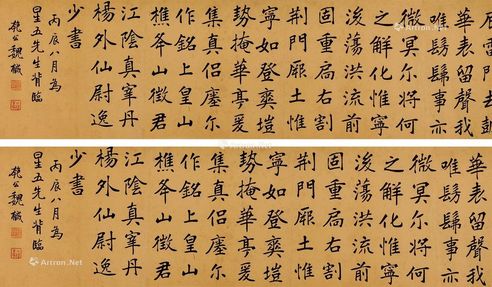 華表留聲我
唯髣髴事亦
微冥尔將何
之解化惟寧
浚蕩洪流前
固重扃右割
荆門厞土惟
寧如登奕塏
勢掩華亭爰
集真侶瘞尔
作銘上皇山
樵山徵君
江陰真宰丹
楊外仙尉逸
少書
丙辰八月為
星五先生背臨
公魏戫
Art
Artron.Net
華表留聲我
唯髣髴事亦
微冥尔將何
之解化惟寧
浚蕩洪流前
固重扃右割
荆門厞土惟
寧如登奕塏
勢掩華亭爰
集真侶瘞尔
作銘上皇山
樵山徵君
江陰真宰丹
楊外仙尉逸
少書
丙辰八月為
星五先生背臨
公魏戫
Artron.Net